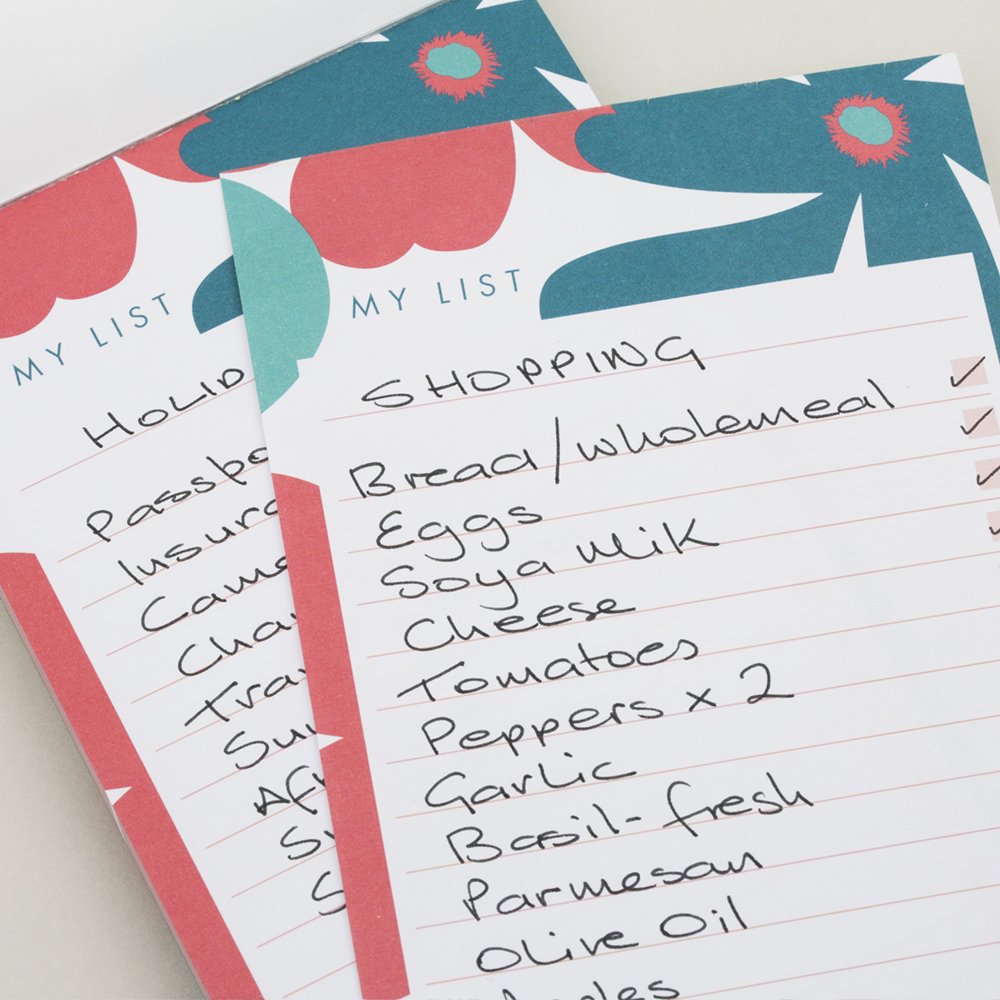 MY LIST
HOLID
Passpo
Insura
Came
Cha
Tra
Su
Af
S
S
MY LIST
SHOPPING
Bread/wholemeal
Eggs
Soya Milk
Cheese
Tomatoes
Peppers x 2
Garlic
Basil - fresh
Parmesan
Olive Oil
Apples